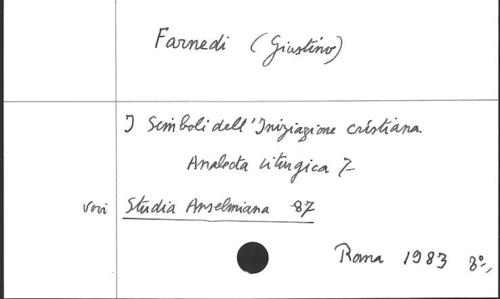 Farnedi (Giustino)
I Simboli dell'Iniziazione cristiana.
Analecta Liturgica 7-
voir Studia Anselmiana 87
Roma 1983 8°-,